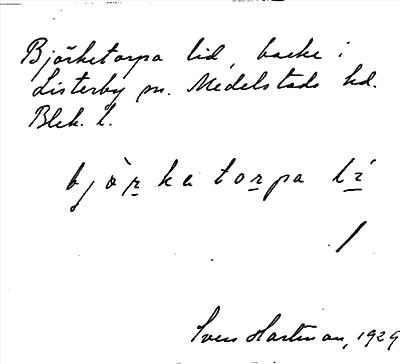 Björketorpa lid, backe i
Listerby sn. Medelstads hd.
Blek. l.
bjò̱rkatorpa lí
/
Sven Hartman, 1929